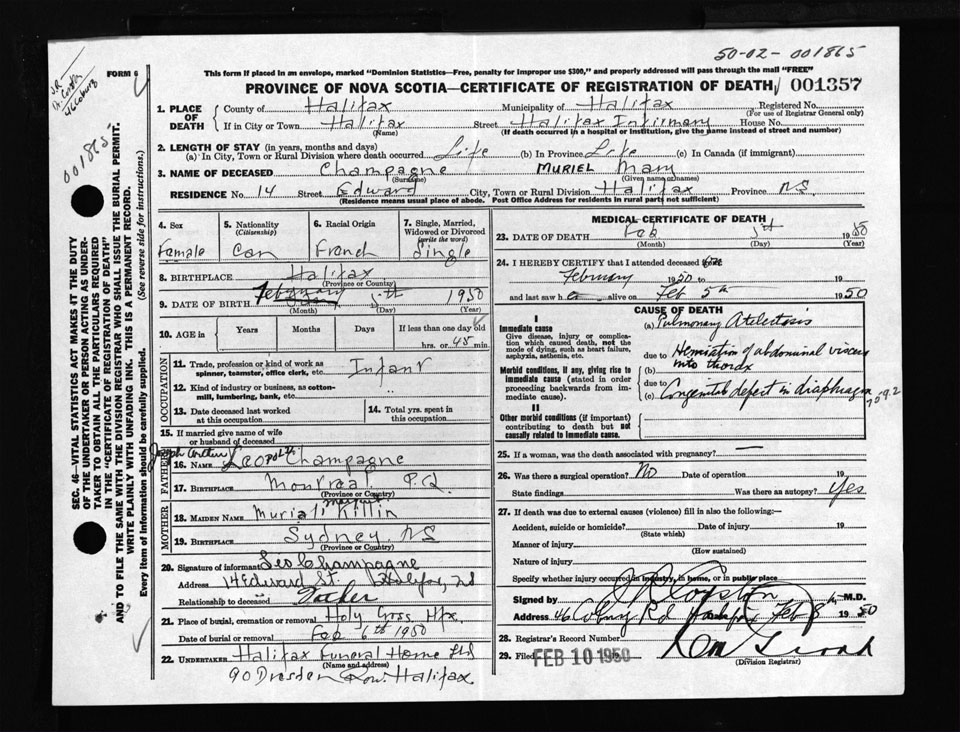 50-02-001865
J.R.
46 Coburg
FORM 6
001865
This form if placed in an envelope, marked "Dominion Statistics—Free, penalty for improper use $300," and properly addressed will pass through the mail "FREE"
PROVINCE OF NOVA SCOTIA—CERTIFICATE OF REGISTRATION OF DEATH 001357
SEC. 46—VITAL STATISTICS ACT MAKES IT THE DUTY
OF THE UNDERTAKER OR PERSON ACTING AS UNDER-
TAKER TO OBTAIN ALL THE PARTICULARS REQUIRED
IN THE "CERTIFICATE OF REGISTRATION OF DEATH"
AND TO FILE THE SAME WITH THE DIVISION REGISTRAR WHO SHALL ISSUE THE BURIAL PERMIT.
WRITE PLAINLY WITH UNFADING INK. THIS IS A PERMANENT RECORD.
Every item of Information should be carefully supplied. (See reverse side for instructions.)
1. PLACE OF DEATH County of Halifax Municipality of Halifax Registered No.
(For use of Registrar General only)
If in City or Town Halifax Street Halifax Infirmary House No.
(Name) (If death occurred in a hospital or institution, give the name instead of street and number)
2. LENGTH OF STAY (in years, months and days)
(a) In City, Town or Rural Division where death occurred Life (b) In Province Life (c) In Canada (if immigrant)
3. NAME OF DECEASED Champagne MURIEL Mary
(Surname) (Given name or names)
RESIDENCE No. 14 Street Edward City, Town or Rural Division Halifax Province NS
(Residence means usual place of abode. Post Office Address for residents in rural parts not sufficient)
4. Sex Female
5. Nationality (Citizenship) Can
6. Racial Origin French
7. Single, Married, Widowed or Divorced (write the word) Single
8. BIRTHPLACE Halifax
(Province or Country)
9. DATE OF BIRTH February 5th 1950
(Month) (Day) (Year)
10. AGE in Years Months Days If less than one day old
hrs. or 45 min.
OCCUPATION
11. Trade, profession or kind of work as spinner, teamster, office clerk, etc. Infant
12. Kind of industry or business, as cotton-mill, lumbering, bank, etc.
13. Date deceased last worked at this occupation
14. Total yrs. spent in this occupation
15. If married give name of wife or husband of deceased
FATHER
Joseph Arthur
16. Name Leopold Champagne
17. BIRTHPLACE Montreal P.Q.
(Province or Country)
MOTHER
18. MAIDEN NAME Murial Margaret Killin
19. BIRTHPLACE Sydney NS
(Province or Country)
20. Signature of informant Leo Champagne
Address 14 Edward St. Halifax, NS
Relationship to deceased Father
21. Place of burial, cremation or removal Holy Cross Hfx
Date of burial or removal Feb 6th 1950
22. UNDERTAKER Halifax Funeral Home Ltd
(Name and address)
90 Dresden Row Halifax
MEDICAL CERTIFICATE OF DEATH
23. DATE OF DEATH Feb 5th 1950
(Month) (Day) (Year)
24. I HEREBY CERTIFY that I attended deceased
February 1950 to 19
and last saw h alive on Feb 5th 1950
CAUSE OF DEATH
I
Immediate cause
Give disease, injury or complication which caused death, not the mode of dying, such as heart failure, asphyxia, asthenia, etc.
(a) Pulmonary Atelectosis
due to Herniation of abdominal viscera
Morbid conditions, if any, giving rise to immediate cause (stated in order proceeding backwards from immediate cause).
(b) into thorax
due to
(c) Congenital defect in diaphragm
II
Other morbid conditions (if important) contributing to death but not causally related to immediate cause.
25. If a woman, was the death associated with pregnancy? —
26. Was there a surgical operation? No Date of operation 19
State findings Was there an autopsy? Yes
27. If death was due to external causes (violence) fill in also the following:—
Accident, suicide or homicide? Date of injury 19
(State which)
Manner of injury
(How sustained)
Nature of injury
Specify whether injury occurred in industry, in home, or in public place
Signed by M.D.
Address 46 Coburg Rd Halifax Feb 8th 1950
28. Registrar's Record Number
29. Filed FEB 10 1950
(Division Registrar)